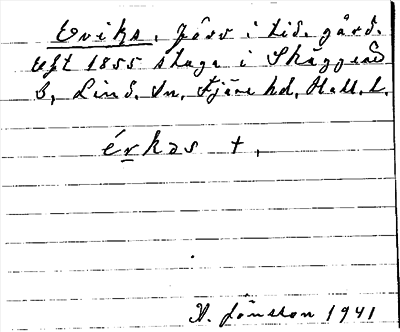 Eriks, förr i tid. gård.
Upt 1855 stuga i Skäggered
S, Lind. Sn, Fjäre hd, Hall. l.
érkas +,
A. Jönsson 1941